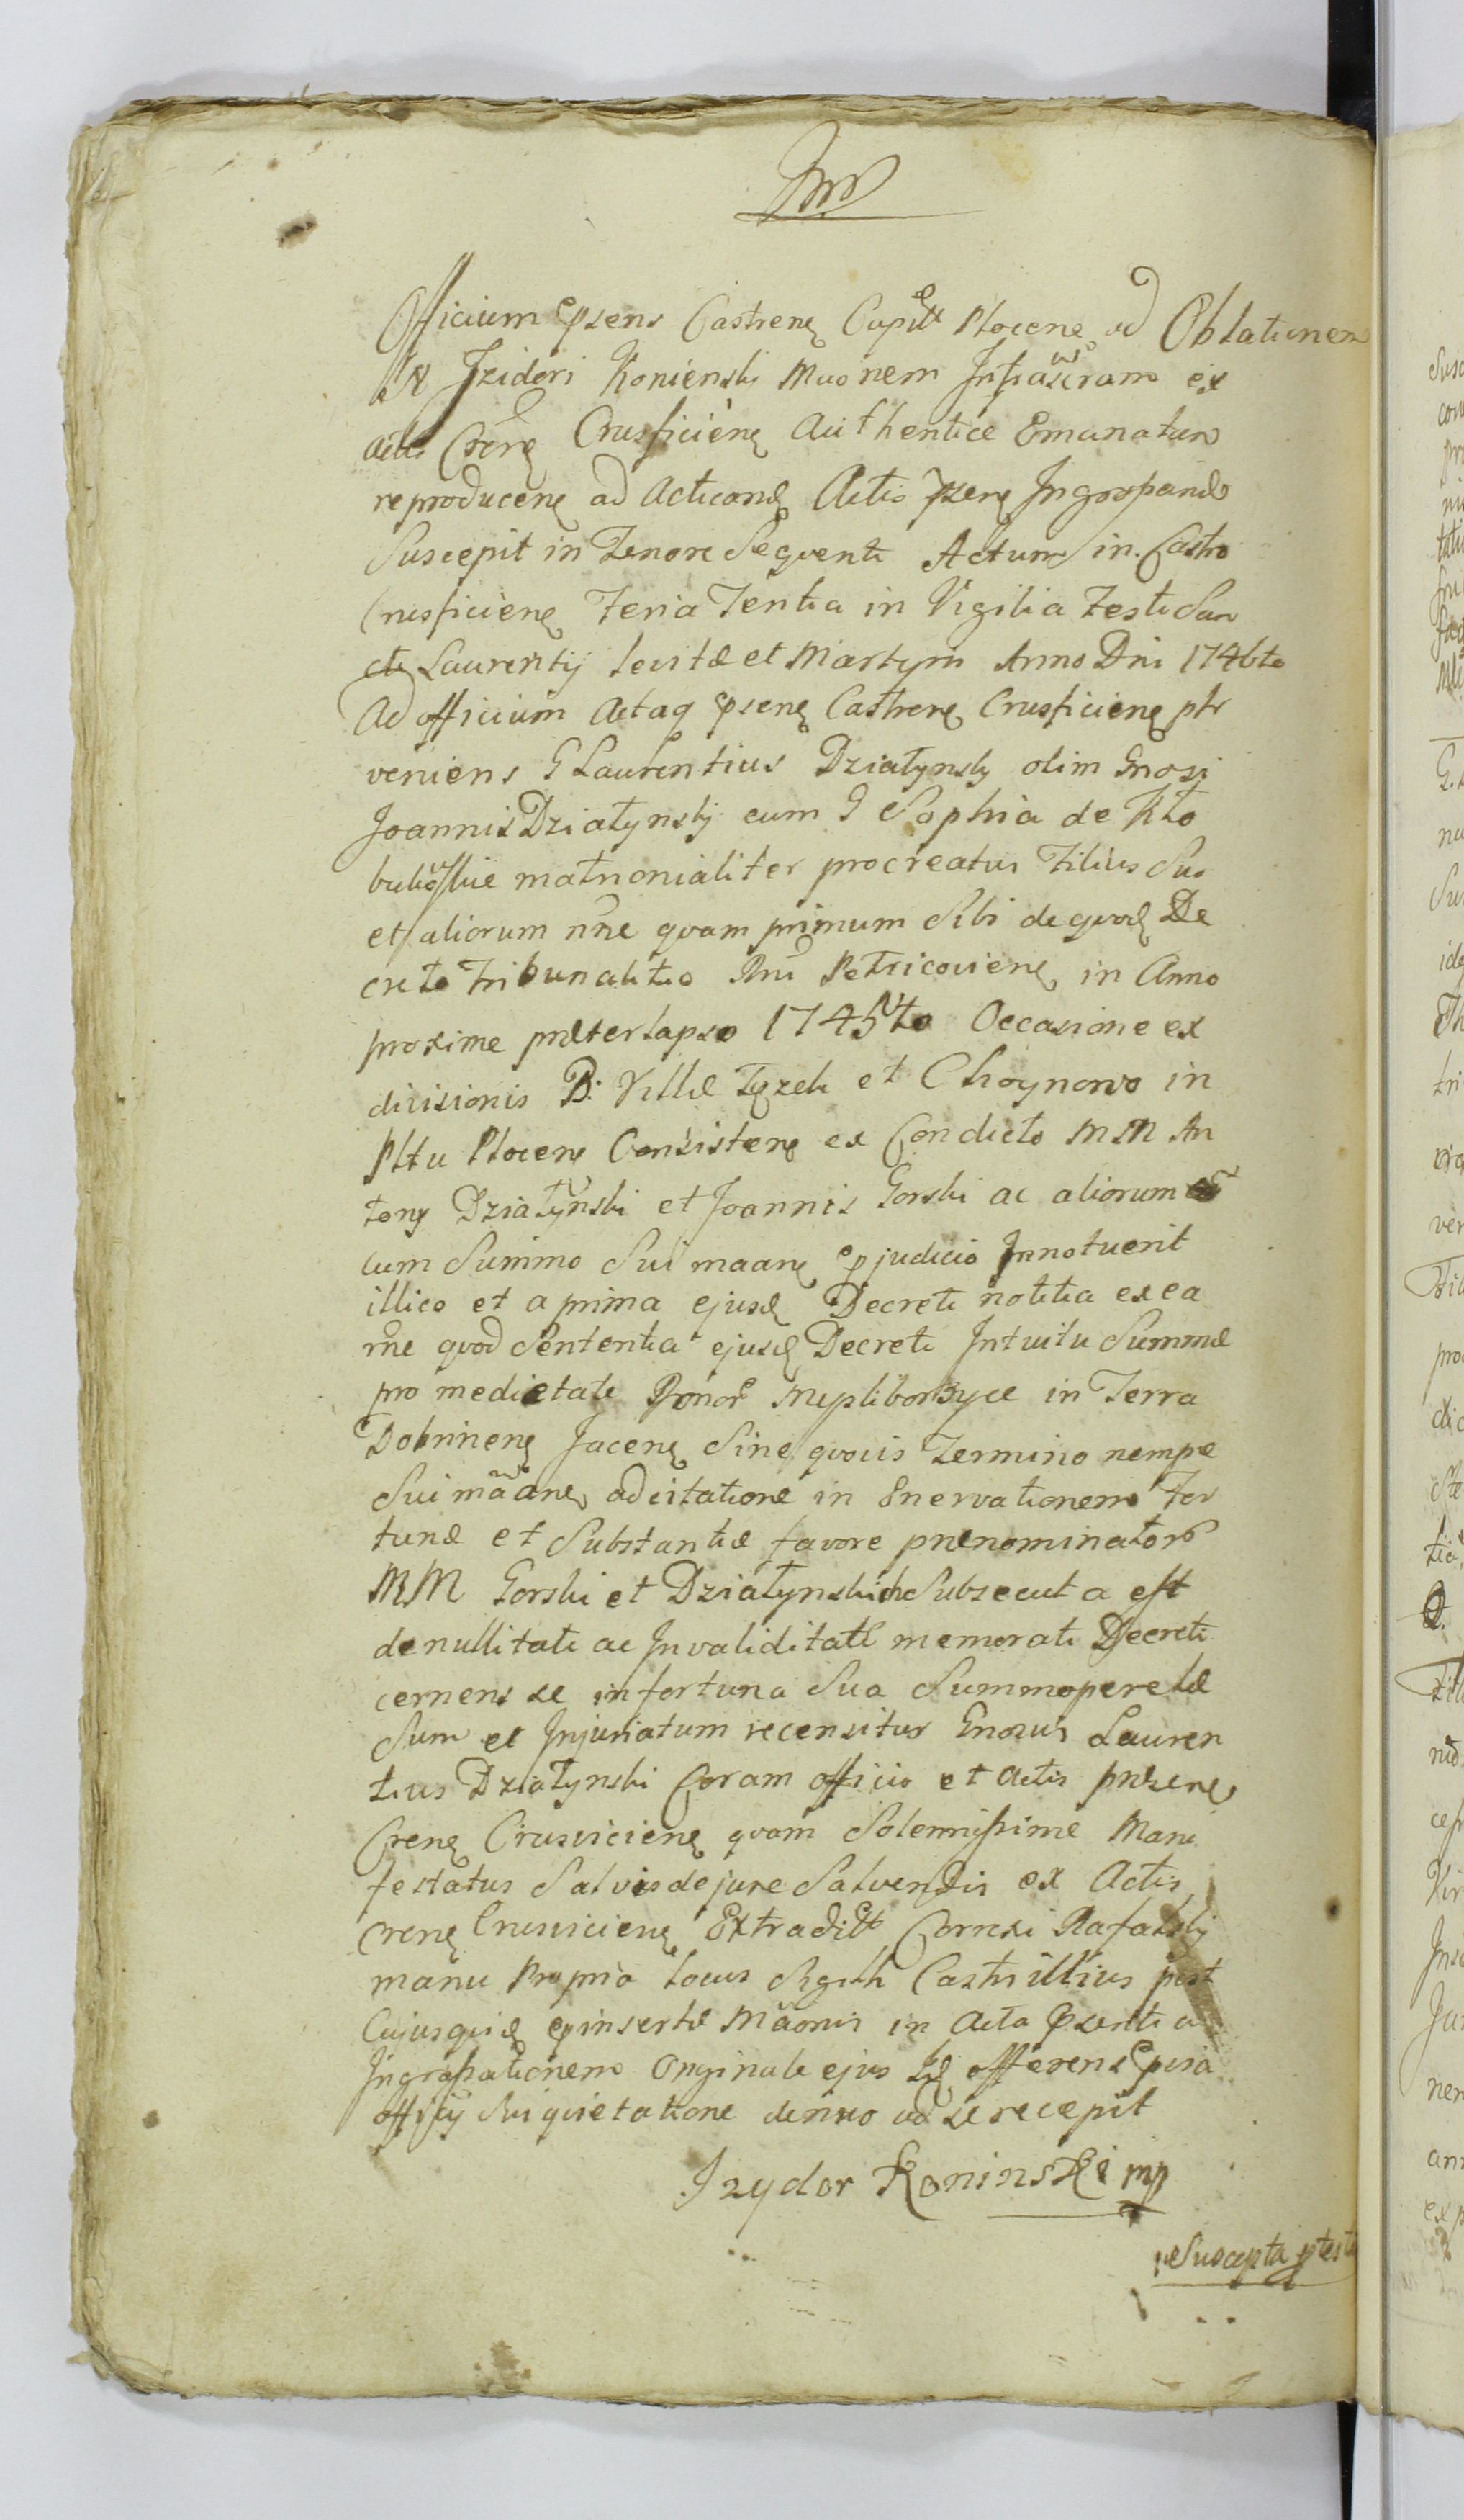 Officium Psens Castrenę Capitłe Płocenę ad Oblationem
N Izidori Konienski Maonem Infrascram ex
actis Crenę Crusficienę Authentice Emanatam
reproducenę ad acticandę Actis pzenę Ingrosandō
Suscepit in Tenore Sequenti Actum in Castro
Crusficienę Feria Tertia in Vigilia Festi San
cti Laurentij levitæ et Martyris Anno Dni 1746to
Ad officium Actaq psenę Castrenę Crusficienę plr
veniens G Laurentius Działynsky olim Gnosi
Joannis Działynskj cum G Sophia de Kło
matrionialiter procreatus Filius Suo
et aliorum nne quam primum Sibi de quodę De
creto Tribunalitio Rni Petricovienę in Anno
proxime præterlapso 1745to Occasione ex
divisionis B. Villæ et Choynowo in
Płtu Płocenę Consistenę ex Condicto MM An
tony Działynski et Joannis Gorski ac aliorum
cum Summo Sui maanę pjudicio Innotuerit
illico et a prima ejusdę Decreti notitia ex ea
rne quod Sententia ejusdę Decreti Intuitu Summæ
pro medietate Bonor in Terra
Dobrinenę Jacenę Sine quovis Termino nempe
Sui māanę adcitatione in Enervationem For
tunæ et Substantiæ favore prænominator
MM Gorski et Działynskich Subsecuta est
de nullitate ac Invaliditate memorati Decreti
cernens se in fortuna Sua Summopere læ
sum et Injuriatum recensitus Gnosus Lauren
tius Działynski Coram officio et Actis præsenę
Crenę Crusvicienę quam Solemnissime Mani
festatus Salvis de jure Salvendis ex Actis
Crenę Crusvicienę Extraditt Correxi Rafalskj
manu Propria Locus Sigilli Castri illius post
Cujusquidę pinsertæ Maonis in Acta psentia
Ingrossationem Originale ejus Idę offerens
officij Sui quietatione denuo ad se recepit
Izydor Koninski mp
Suscepta